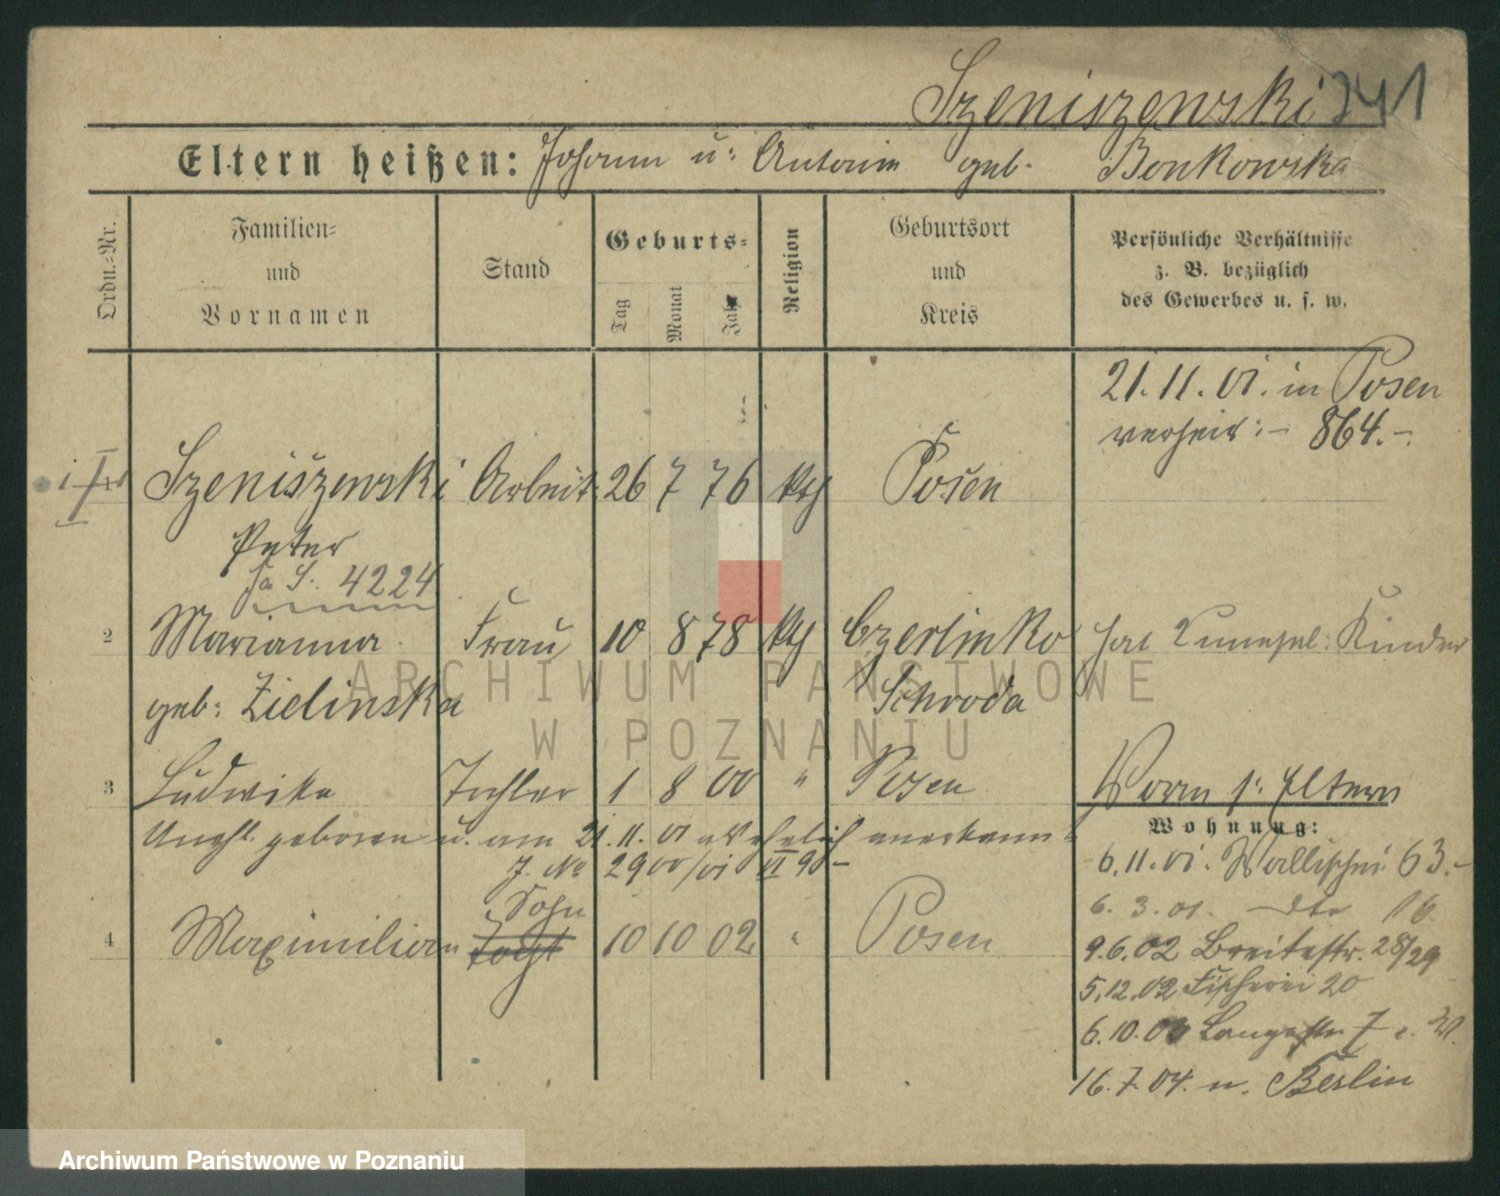 Szeniszewski 741
Eltern heißen: Johann u: Antonie geb. Bonkowska
Ordn.-Nr.
Familien-
und
Vornamen
Stand
Geburts-
Tag
Monat
Jahr
Religion
Geburtsort
und
Kreis
Persönliche Verhältnisse
z. B. bezüglich
des Gewerbes u. s. w.
21.11.01. in Posen
verheir:- 864.-
1 Szeniszewski Arbeit. 26 7 76 kth Posen
Peter
S. 4224
2 Marianna Frau 10 8 78 kth Czerlinko hat Kinder
geb: Zielinska Schroda
3 Ludwika Tochter 1 8 00 " Posen Eltern
Unehl. geboren u. am 21.11.01 ehelich anerkannt
J. No 2900/01 VI 90-
Wohnung:
6.11.01. Wallischei 63.-
6. 3. 01. dto 16
4 Maximilian Sohn 10 10 02 " Posen
9.6.02 Breitestr. 28/29
5.12.02 Fischerei 20
Langestr 7
16.7.04. n. Berlin
ARCHIWUM PAŃSTWOWE
W POZNANIU
Archiwum Państwowe w Poznaniu